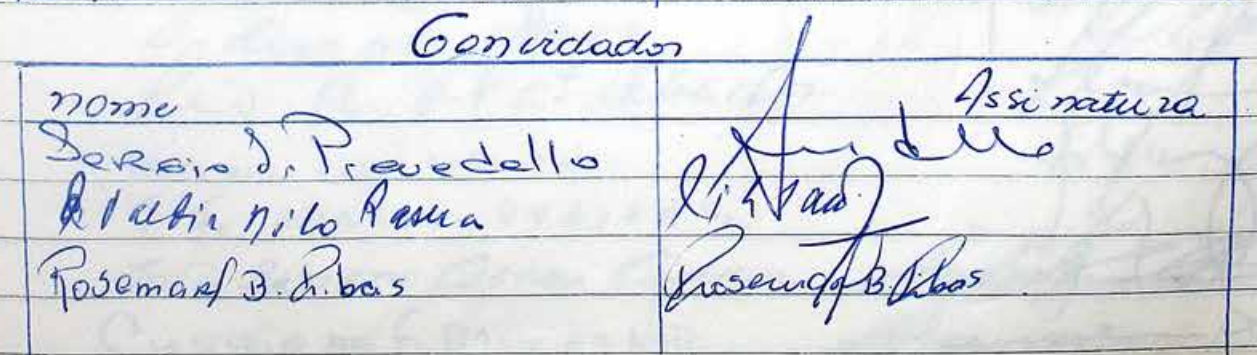 Convidados
nome Assinatura
Sergio I. Prevedello
Nilo Rasera
Rosemary B. Ribas Rosemary B. Ribas